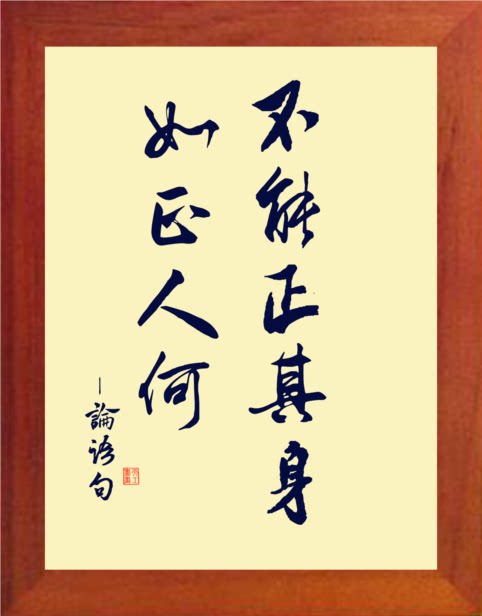 不能正其身
如正人何
－論语句